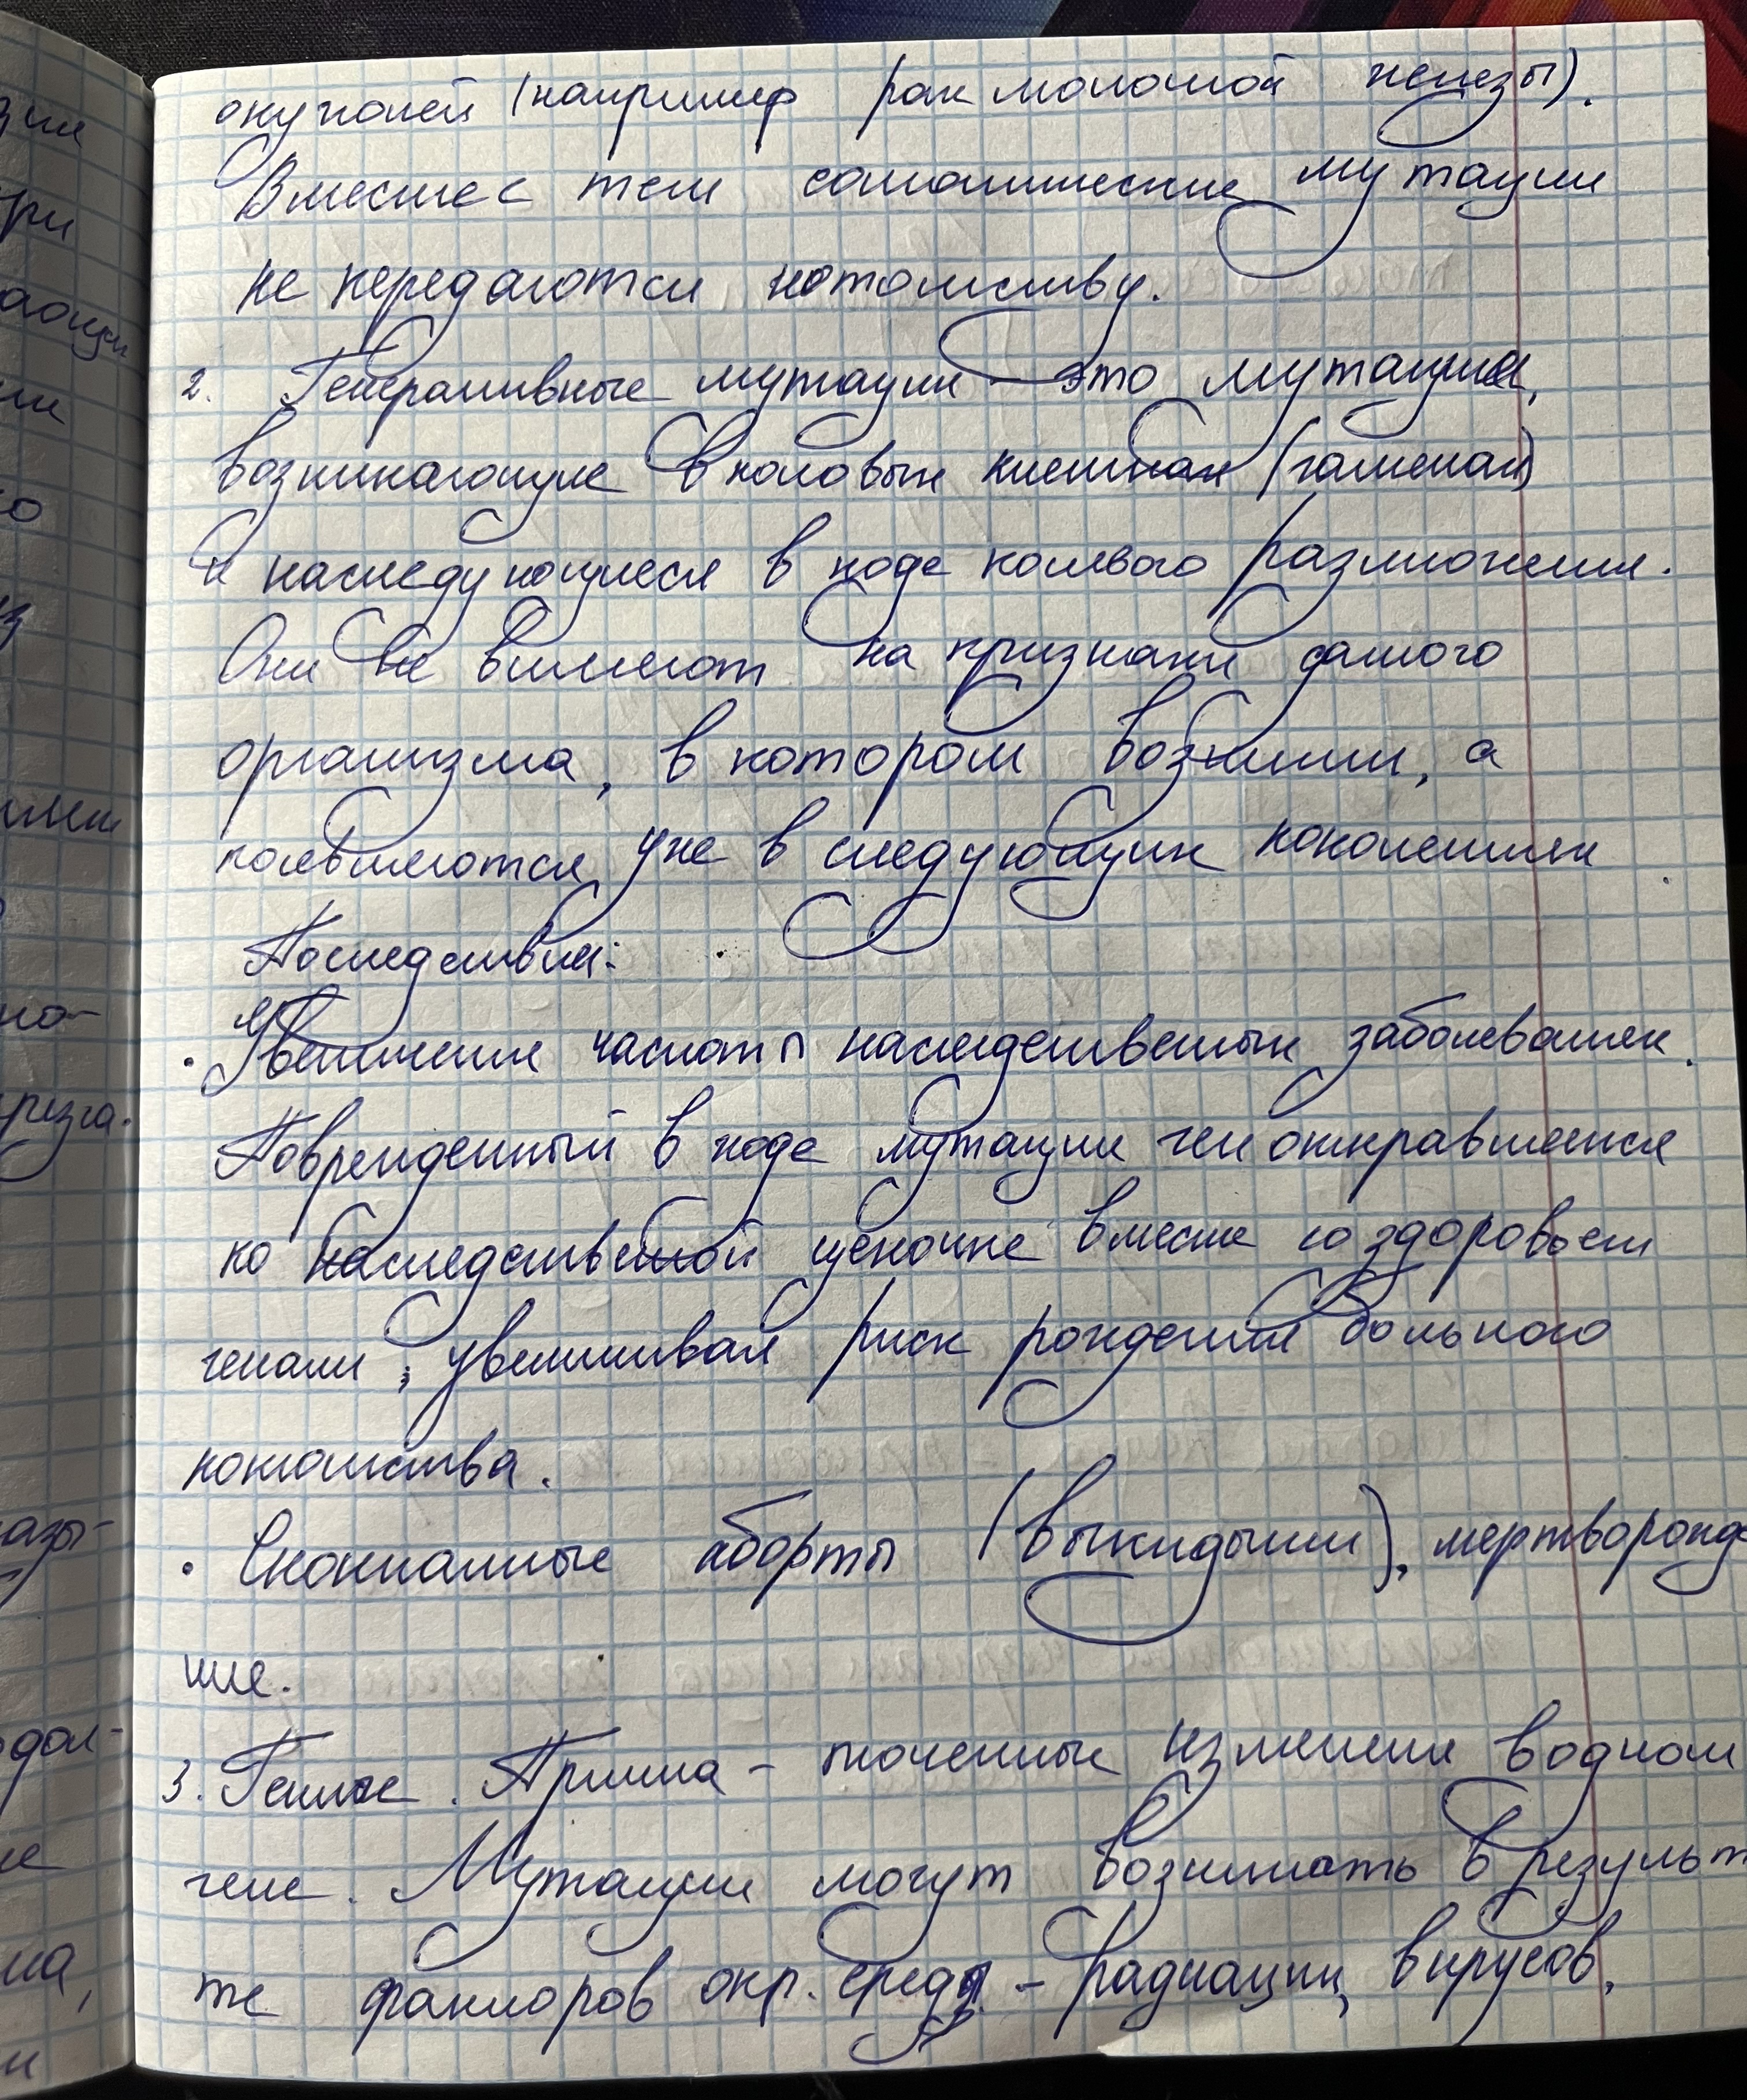 опухолей (например рак молочной железы).
Вместе с тем соматические мутации
не передаются потомству.
2. Генеративные мутации - это мутации,
возникающие в половых клетках (гаметах)
и наследующиеся в ходе полового размножения.
Они не влияют на признаки самого
организма, в котором возникли, а
появляются уже в следующих поколениях
Последствия:
· Увеличение частоты наследственных заболеваний.
Поврежденный в ходе мутации ген отправляется
по наследственной цепочке вместе со здоровыми
генами, увеличивая риск рождения больного
потомства.
· Спонтанные аборты (выкидыши), мертворожде
ние.
3. Генные. Причина - точечные изменения в одном
гене. Мутации могут возникать в результ
те факторов окр. среды - радиации, вирусов,
зии
ри
но-
реза.
азы-
дол-
на,